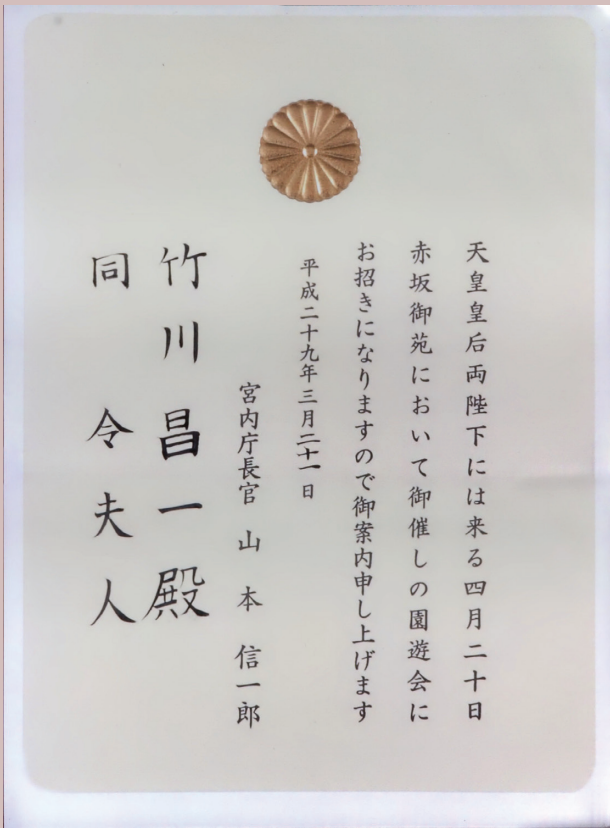 天皇皇后両陛下には来る四月二十日
赤坂御苑において御催しの園遊会に
お招きになりますので御案内申し上げます
平成二十九年三月二十一日
宮内庁長官 山本 信一郎
竹川昌一殿
同 令夫人